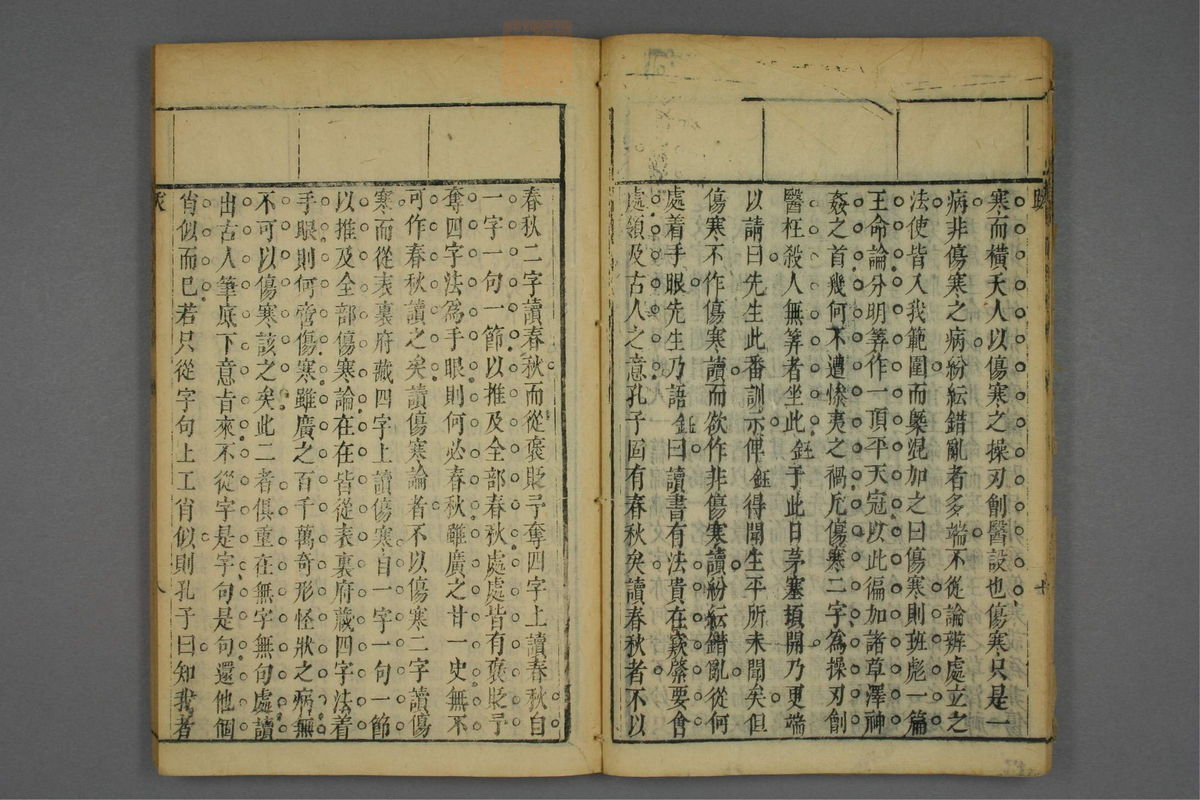 寒而橫夭人以傷寒之操刃創醫設也傷寒只是一
病非傷寒之病紛紜錯亂者多端不從論辨處立之
法使皆入我範圍而槩混加之曰傷寒則班彪一篇
王命論分明筭作一頂平天冠以此徧加諸草澤神
姦之首幾何不遭慘夷之禍凡傷寒二字為操刃創
醫枉殺人無筭者坐此鈺于此日茅塞頓開乃更端
以請曰先生此番訓示俾鈺得聞生平所未聞矣但
傷寒不作傷寒讀而欲作非傷寒讀紛紜錯亂從何
處着手眼先生乃語鈺曰讀書有法貴在窾綮要會
處領及古人之意孔子固有春秋矣讀春秋者不以
春秋二字讀春秋而從褒貶予奪四字上讀春秋自
一字一句一節以推及全部春秋處處皆有褒貶予
奪四字法為手眼則何必春秋雖廣之廿一史無不
可作春秋讀之矣讀傷寒論者不以傷寒二字讀傷
寒而從表裏府藏四字上讀傷寒自一字一句一節
以推及全部傷寒論在在皆從表裏府藏四字法着
手眼則何啻傷寒雖廣之百千萬奇形怪狀之病無
不可以傷寒該之矣此二者俱重在無字無句處讀
出古人筆底下意旨來不從字是字句是句還他個
肖似而已若只從字句上工肖似則孔子曰知我者